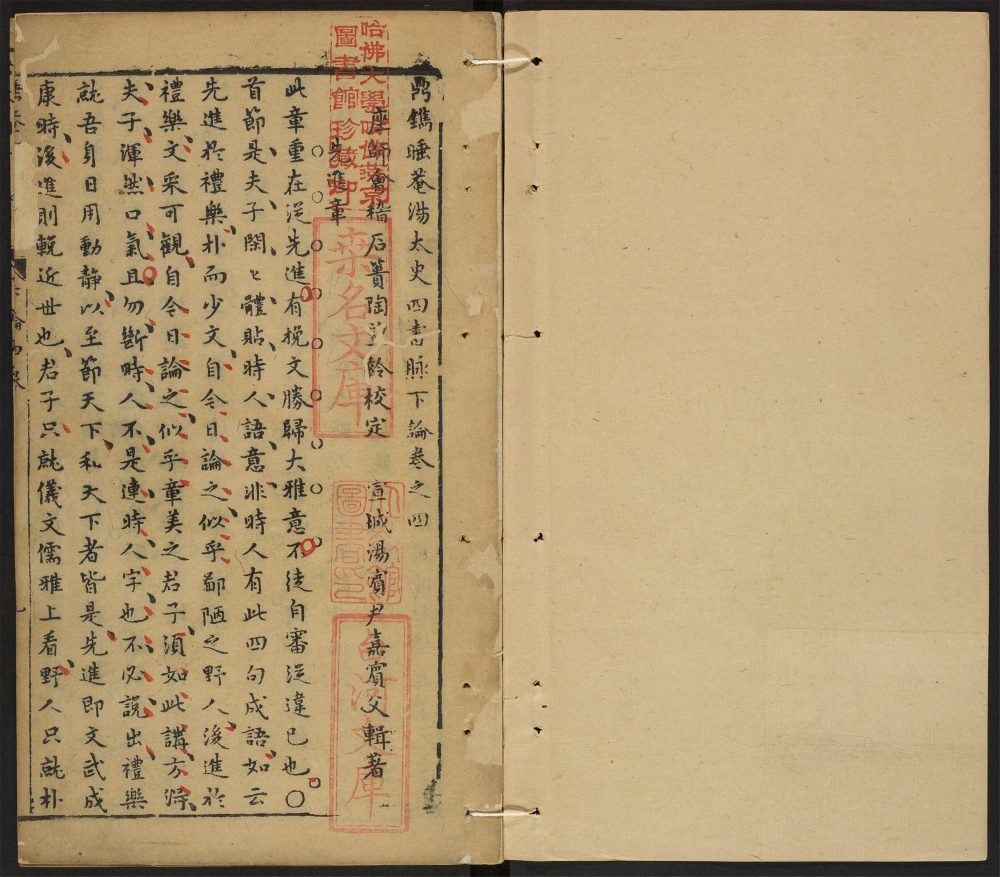 鼎鐫睡菴湯太史四書脉下論卷之四
座師會稽石簣陶望齡校定 宣城湯賓尹嘉賓父輯著
先進章
此章重在從先進有挽文勝歸大雅意不徒自審從違已也〇
首節是夫子閑〻體貼時人語意非時人有此四句成語如云
先進於禮樂朴而少文自今日論之似乎鄙陋之野人後進於
禮樂文采可觀自今日論之似乎章美之君子須如此講方得
夫子渾然口氣且勿斷時人不是連時人字也不必說出禮樂
就吾身日用動靜以至節天下和天下者皆是先進即文武成
康時後進則輓近世也君子只就儀文儒雅上看野人只就朴
哈佛大學哈佛燕京
圖書館珍藏印